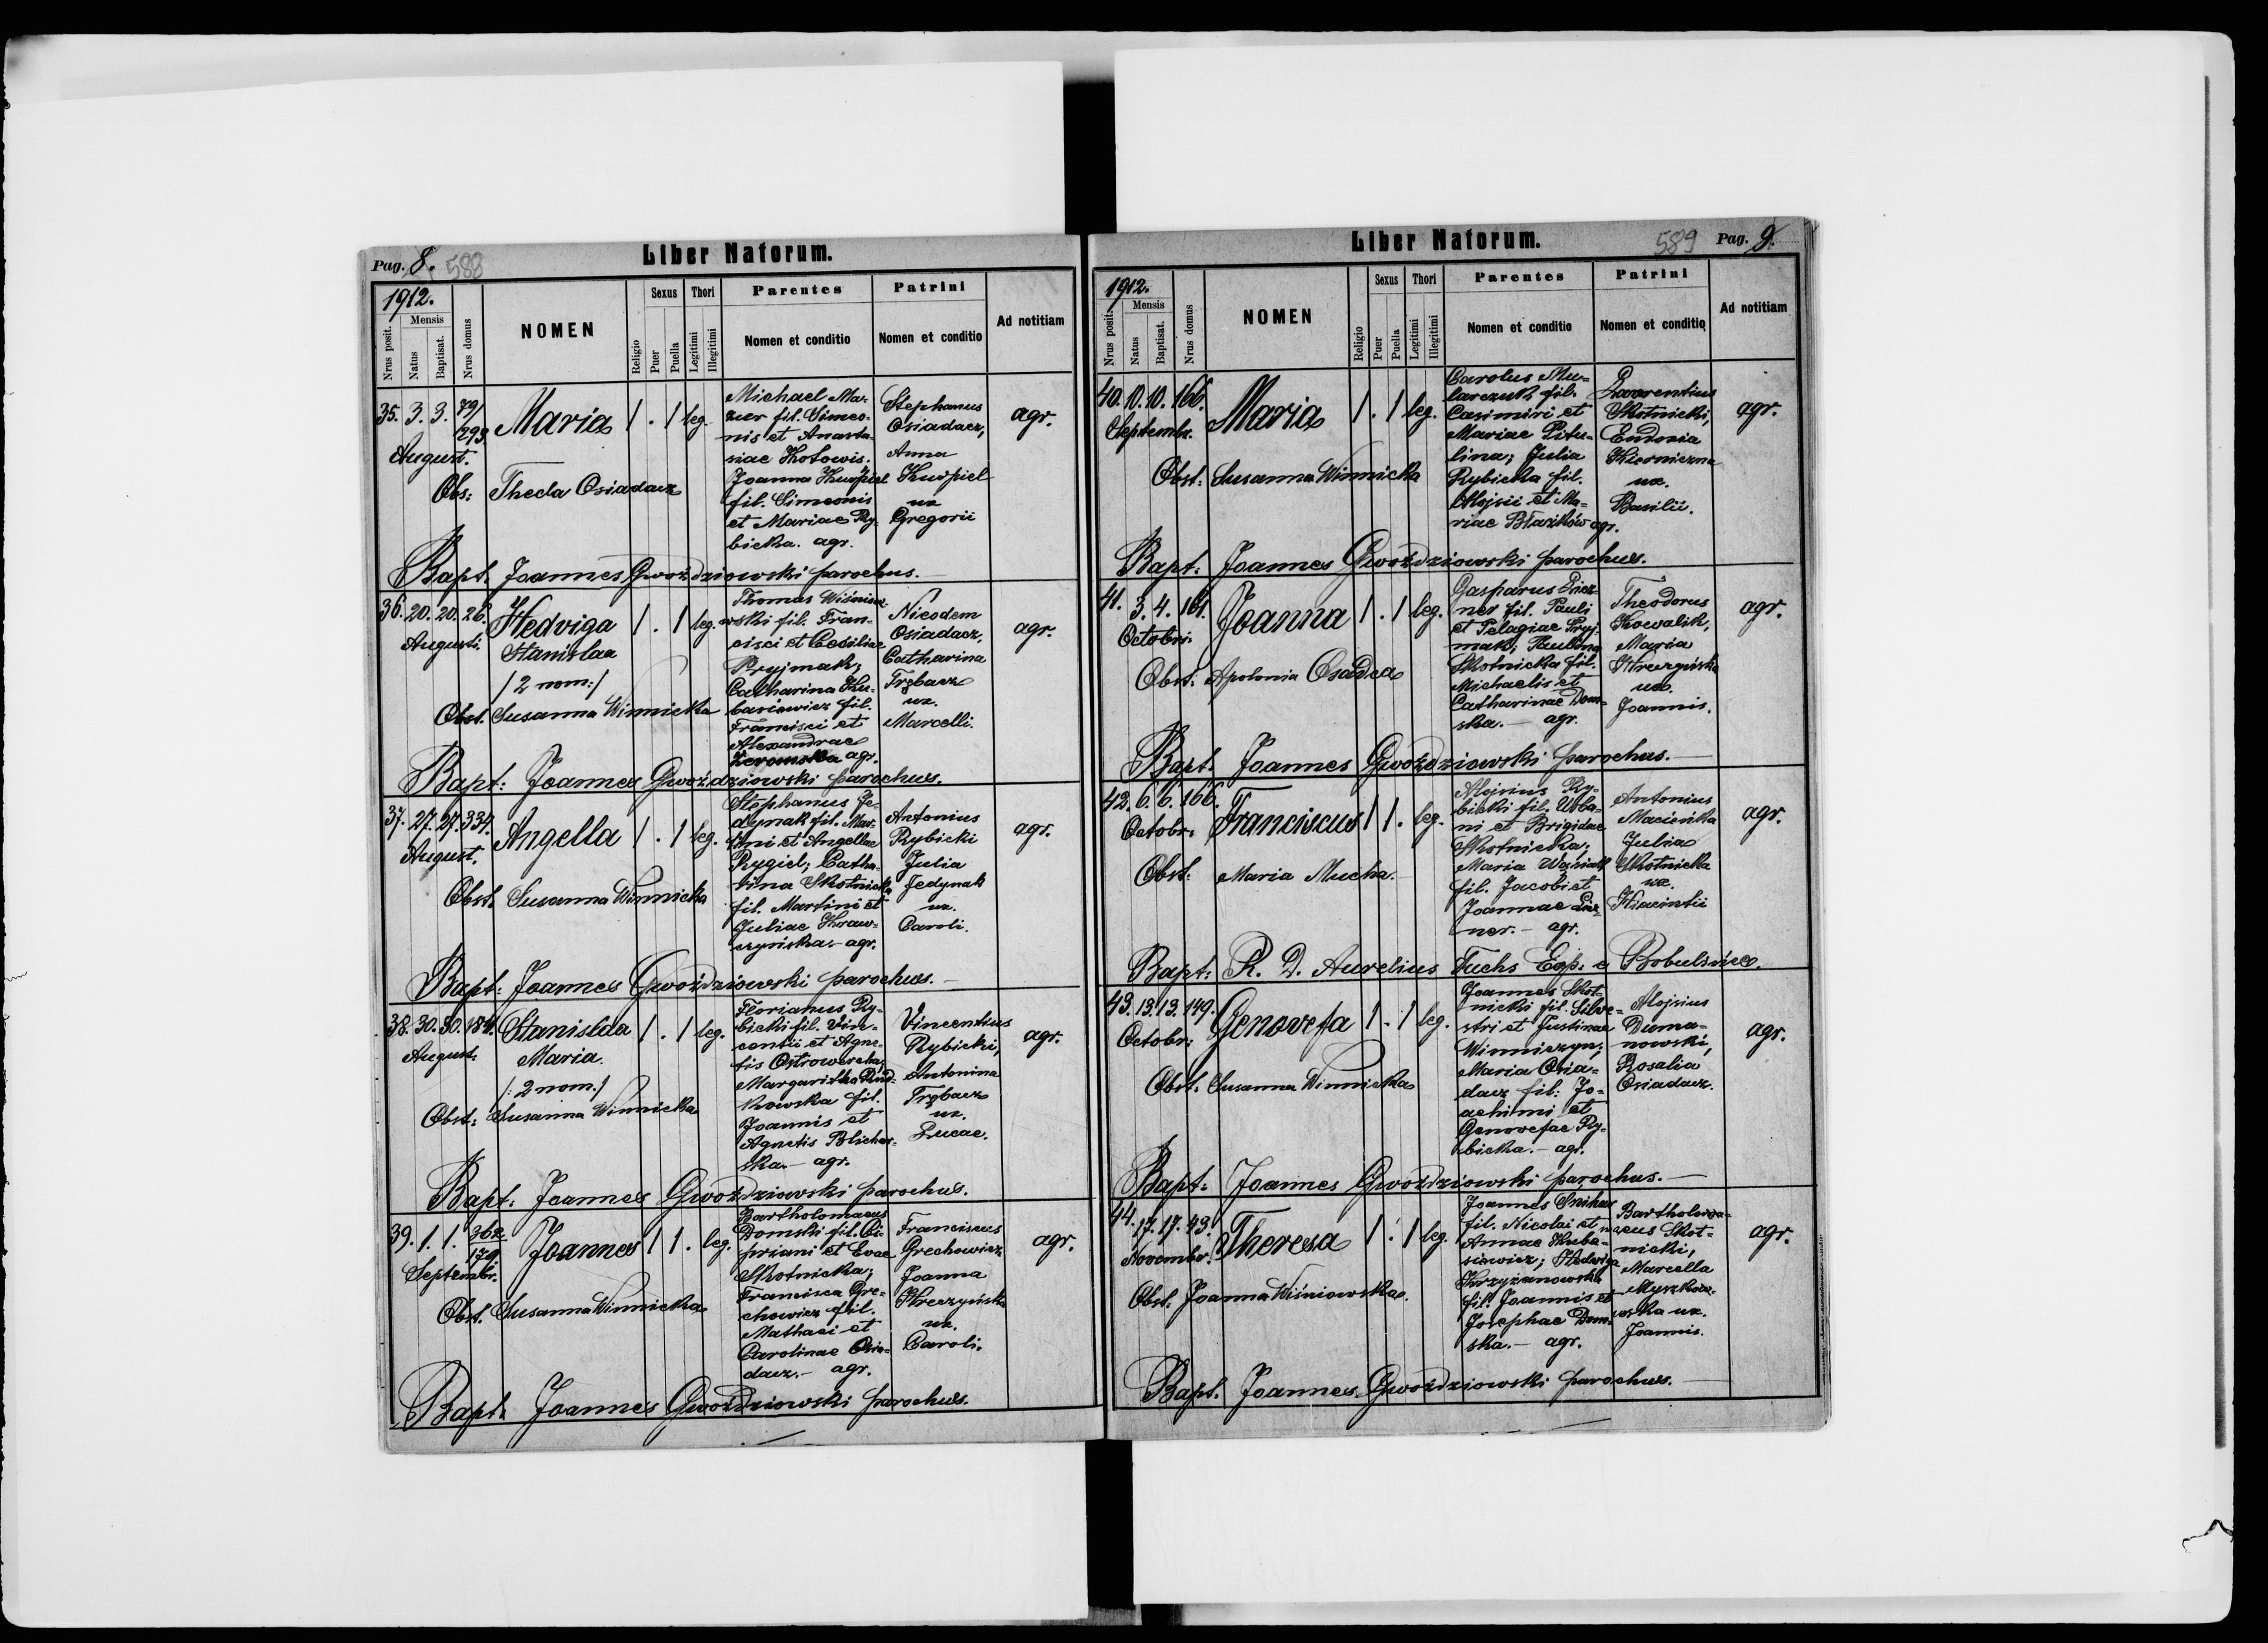 Pag. 8. 588
Liber Natorum.
1912.
Nrus posit.
Mensis
Natus
Baptisat.
Nrus domus
NOMEN
Religio
Sexus
Puer
Puella
Thori
Legitimi
Illegitimi
Parentes
Nomen et conditio
Patrini
Nomen et conditio
Ad notitiam
35. 3. 3. 79/293 Maria 1 . 1 leg. agr.
August.
Obs: Thecla Osiadacz
Michael Ma-
zur fil. Simeo-
nis et Anasta-
siae Kotowis.
Joanna Kuśpiel
fil. Simeonis
et Mariae Ry-
bicka. agr.
Stephanus
Osiadacz,
Anna
Kuśpiel
ux
Gregorii
Bapt. Joannes Gwoździowski parochus.
36. 20. 20. 26. Hedviga 1 . 1 leg. agr.
Augusti. Stanislaa
/2 nom:/
Obst. Susanna Winnicka
Thomas Wiśniew-
wski fil. Fran-
cisci et Cecsiliae
Pryjmak;
Catharina Ku-
basiewicz fil.
Francisci et
Alexandrae
Żeromska agr.
Nicodem
Osiadacz,
Catharina
Trębacz
ux.
Marcelli.
Bapt: Joannes Gwoździowski parochus.
37. 27. 27. 334. Angella 1 . 1 leg. agr.
August.
Obst. Susanna Winnicka
Stephanus Je-
dynak fil. Mar-
tini et Angellae
Rygiel; Catha-
rina Skotnicka
fil. Martini et
Juliae Kraw-
czyńska - agr.
Antonius
Rybicki
Julia
Jedynak
ux.
Caroli.
Bapt: Joannes Gwoździowski parochus.
38. 30. 30. 184. Stanislaa 1 . 1 leg. agr.
August. Maria.
/:2 nom./
Obst: Susanna Winnicka
Florianus Ry-
bicki fil. Vin-
centii et Agne-
tis
Margaritha
kowska fil.
Joannis et
Agnetis Blichar-
ska. - agr.
Vincentius
Rybicki,
Antonina
Trębacz
ux.
Lucae.
Bapt: Joannes Gwoździowski parochus.
39. 1. 1. 362/179 Joannes 1 1 . leg. agr.
Septembr.
Obst. Susanna Winnicka
Bartholomaeus
Domski fil. Ci-
priani et Evae
Skotnicka;
Francisca Gre-
chowicz fil.
Mathaei et
Carolinae Osia-
dacz. - agr.
Franciscus
Grechowicz
Joanna
Kreczyńska
ux.
Caroli.
Bapt. Joannes Gwoździowski parochus.
Liber Natorum.
589 Pag. 9.
1912.
Nrus posit.
Mensis
Natus
Baptisat.
Nrus domus
NOMEN
Religio
Sexus
Puer
Puella
Thori
Legitimi
Illegitimi
Parentes
Nomen et conditio
Patrini
Nomen et conditio
Ad notitiam
40. 10. 10. 166. Maria 1 . 1 leg. agr.
Septembr.
Obst: Susanna Winnicka
Carolus Mu-
larczuk fil.
Casimiri et
Mariae Pitu-
lina; Julia
Rybicka fil.
Alojsii et Ma-
riae Błażków agr.
Laurentius
Skotnicki,
Eudoxia
Kierniczna
ux.
Basilii.
Bapt: Joannes Gwoździowski parochus.
41. 3. 4. 161. Joanna 1 . 1 leg. agr.
Octobri.
Obst: Apolonia Osadca
Gasparus
ner fil. Pauli
et Pelagiae Pryj-
mak; Paulina
Skotnicka fil.
Michaelis et
Catharinae Dom-
ska. - agr.
Theodorus
Kowalik,
Maria
Kreczyńska
ux.
Joannis.
Bapt. Joannes Gwoździowski parochus.
42. 6. 6. 166. Franciscus 1 1 . leg. agr.
Octobr:
Obst: Maria Mucha.
Alojsius Ry-
bicki fil. Urba-
ni et Brigidae
Skotnicka;
Maria Woźniak
fil. Jacobi et
Joannae
ner. - agr.
Antonius
Macieńka
Julia
Skotnicka
ux.
Hiacintii
Bapt: R. D. Aurelius Fuchs Exp. e Bobulińce.
43. 13. 13. 149. Genovefa 1 . 1 leg. agr.
Octobr:
Obst. Susanna Winnicka
Joannes Skot-
nicki fil. Silve-
stri et Justinae
Winniczyn;
Maria Osia-
dacz fil: Jo-
achimi et
Genovefae Ry-
bicka. - agr.
Alojsius
Duma-
nowski,
Rosalia
Osiadacz.
Bapt: Joannes Gwoździowski parochus.
44. 17. 17. 43. Theresa 1 . 1 leg. agr.
Novembr.
Obst: Joanna Wiśniowska.
Joannes Snihur
fil. Nicolai et
Annae Kuba-
siewicz; Hedwiga
Krzyżanowska
fil. Joannis et
Josephae Dom-
ska. - agr.
Bartholom-
aeus Skot-
nicki,
Marcella
Myszkow-
ska ux.
Joannis.
Bapt. Joannes Gwoździowski parochus.